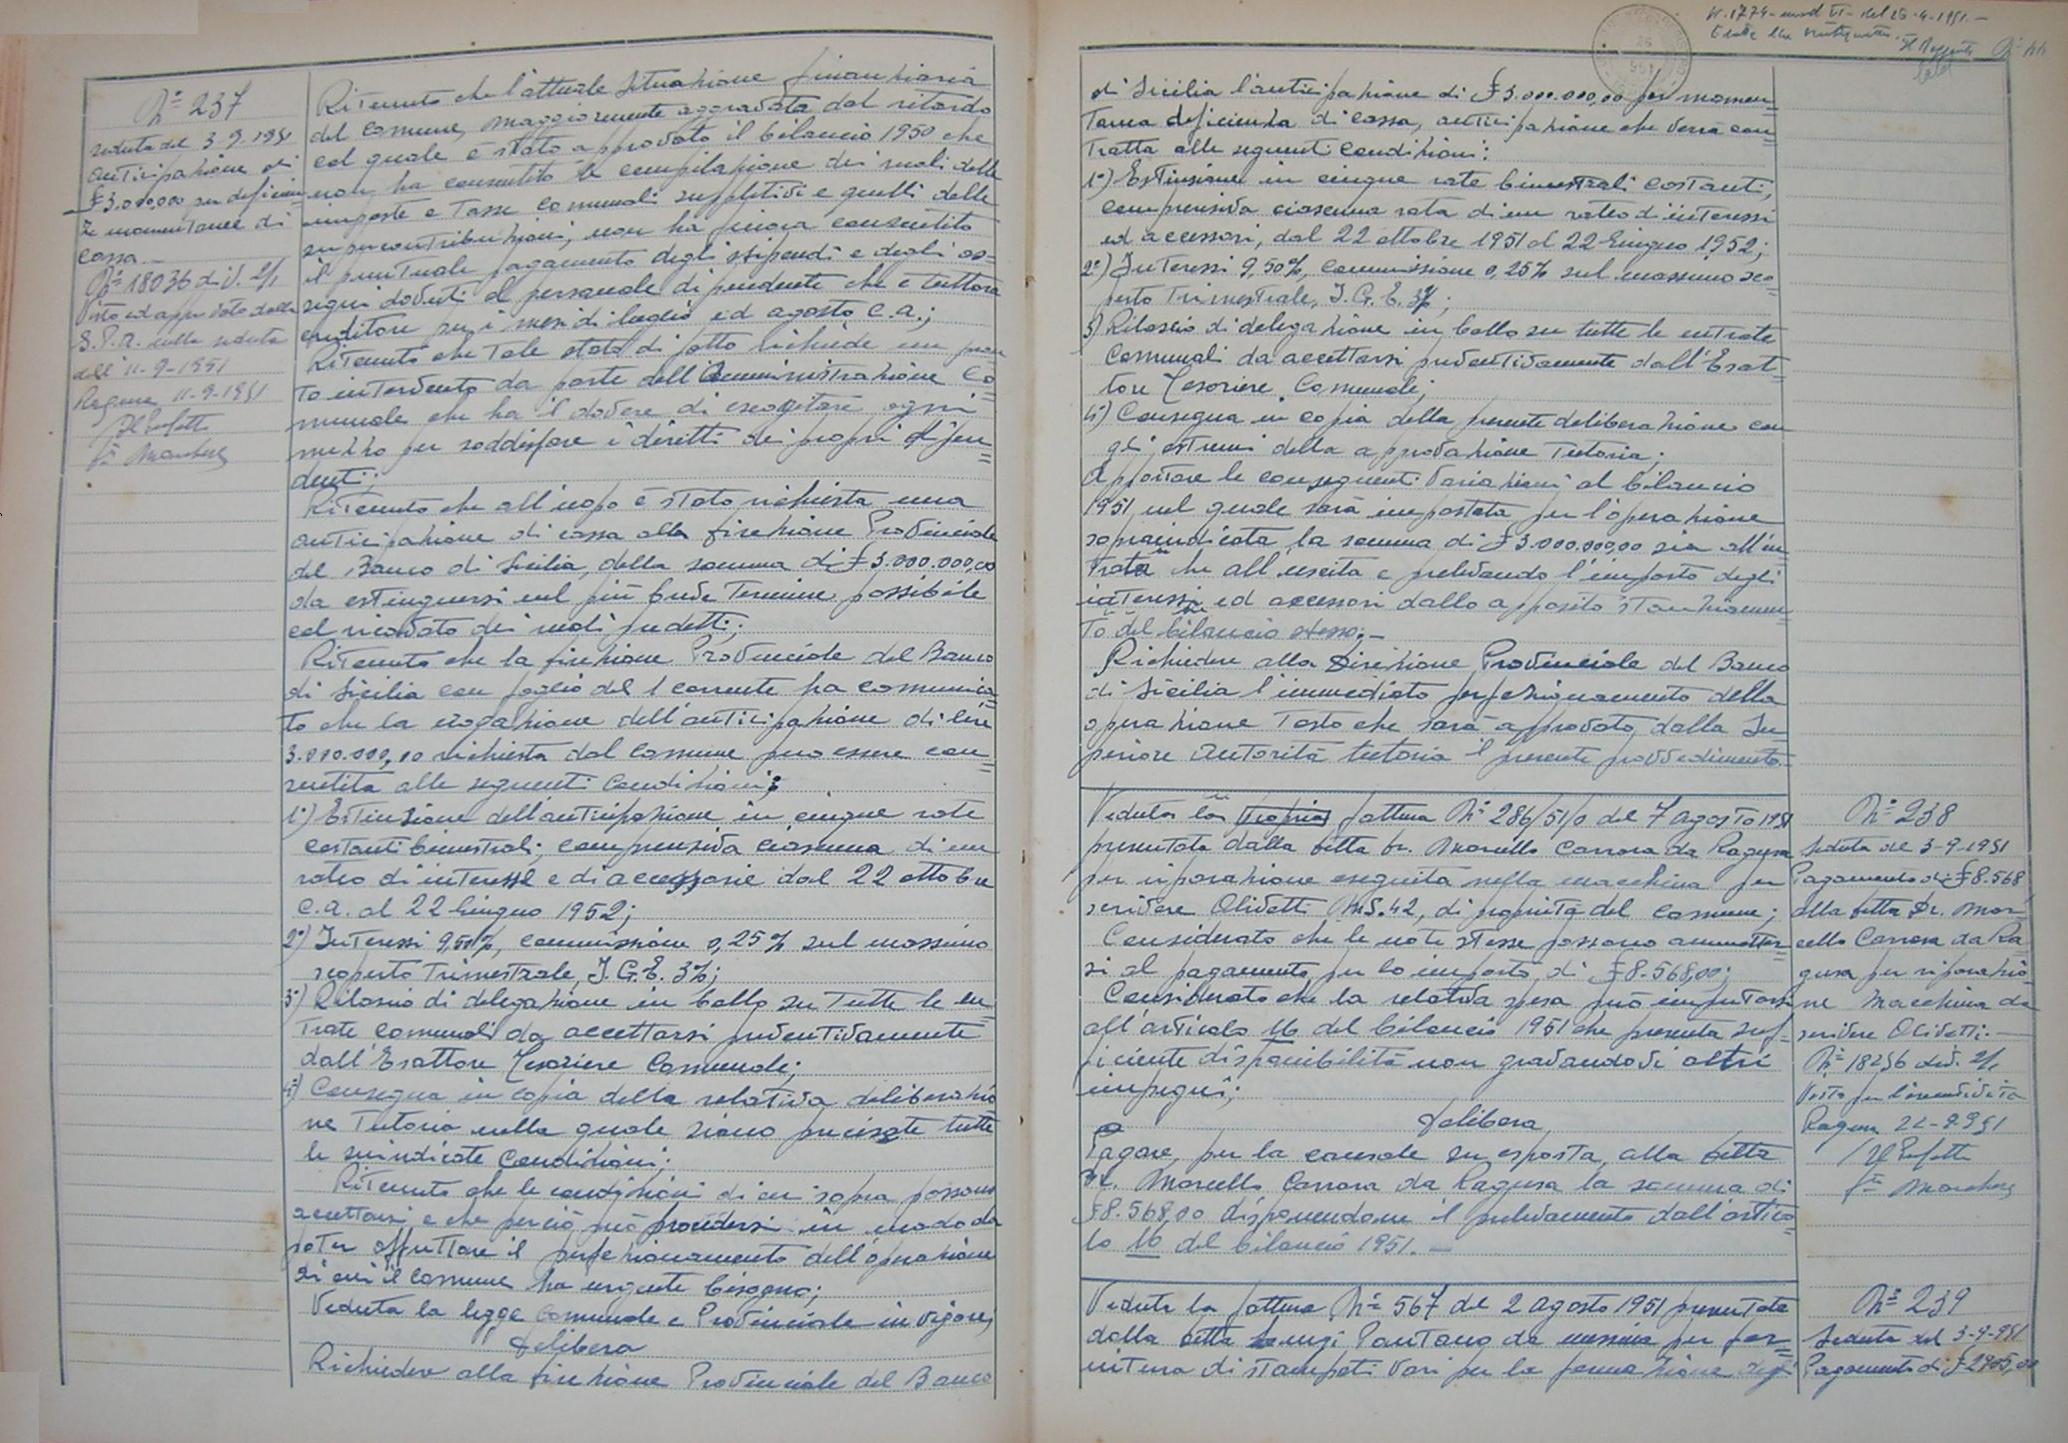 N° 237
seduta del 3-9-1951
anticipazione di
£3.000.000 per deficien
ze momentanee di
cassa.-
N° 18036 div. 2/1
Visto ed approvato dalla
G.P.A. nella seduta
dell'11-9-1951
Ragusa 11-9-1951
Il Prefetto
Ritenuto che l'attuale situazione finanziaria
del Comune, maggiormente aggravata dal ritardo
col quale è stato approvato il bilancio 1950 che
non ha consentito la compilazione dei ruoli delle
imposte e tasse comunali suppletivi e quelli delle
supercontribuzioni, non ha finora consentito
il puntuale pagamento degli stipendi e degli as=
segni dovuti al personale dipendente che è tuttora
creditore per i mesi di luglio ed agosto c.a.;
Ritenuto che tale stato di fatto richiede un pron
to intervento da parte dell'Amministrazione Co=
munale che ha il dovere di escogitare ogni
mezzo per soddisfare i diritti dei propri dipen=
denti;
Ritenuto che all'uopo è stato richiesta una
anticipazione di cassa alla Direzione Provinciale
del Banco di Sicilia, della somma di £3.000.000,00
da estinguersi nel più breve termine possibile
col ricavato dei ruoli predetti;
Ritenuto che la Direzione Provinciale del Banco
di Sicilia con foglio del 1 corrente ha comunica=
to che la erogazione dell'anticipazione di lire
3.000.000,00 richiesta dal Comune può essere con=
sentita alle seguenti condizioni:
1°) Estinzione dell'anticipazione in cinque rate
costanti bimestrali, comprensiva ciascuna di un
rateo di interessi e di accessorie dal 22 ottobre
c.a. al 22 Giugno 1952;
2°) Interessi 9,50%, commissione 0,25% sul massimo
scoperto trimestrale, I.G.E. 3%;
3°) Rilascio di delegazione in bollo su tutte le en=
trate comunali da accettarsi preventivamente
dall'Esattore Tesoriere Comunale;
4°) Consegna in copia della relativa deliberazio=
ne Tutoria nella quale siano precisate tutte
le suindicate condizioni;
Ritenuto che le condizioni di cui sopra possono
accettarsi e che perciò può procedersi in modo da
poter affrettare il perfezionamento dell'operazione
di cui il Comune ha urgente bisogno;
Veduta la legge Comunale e Provinciale in vigore;
Delibera
Richiedere alla Direzione Provinciale del Banco
N. 1774 del 26-4-1951.-
di Sicilia l'anticipazione di £3.000.000,00 per momen=
tanea deficienza di cassa, anticipazione che verrà con=
tratta alle seguenti condizioni:
1°) Estinzione in cinque rate bimestrali costanti,
comprensiva ciascuna rata di un rateo d'interessi
ed accessori, dal 22 ottobre 1951 al 22 Giugno 1952;
2°) Interessi 9,50%, commissione 0,25% sul massimo sco=
perto trimestrale, I.G.E. 3%;
3) Rilascio di delegazione in bollo su tutte le entrate
comunali da accettarsi preventivamente dall'Esat=
tore Tesoriere Comunale;
4°) Consegna in copia della presente deliberazione con
gli estremi della approvazione Tutoria;
Apportare le conseguenti variazioni al bilancio
1951 nel quale sarà impostata per l'operazione
sopraindicata la somma di £3.000.000,00 sia all'en=
trata che all'uscita e prelevando l'importo degli
interessi ed accessori dallo apposito stanziamen=
to del bilancio stesso.-
Richiedere alla Direzione Provinciale del Banco
di Sicilia l'immediato perfezionamento della
operazione tosto che sarà approvato dalla Su=
periore autorità tutoria il presente provvedimento.
Veduta la fattura N° 286/51/0 del 7 agosto 1951
presentata dalla Ditta Dr. Marcello Carrara da Ragusa
per riparazione eseguita nella macchina per
scrivere Olivetti M.S.42, di proprietà del Comune;
Considerato che le note stesse possono ammetter=
si al pagamento per lo importo di £8.568,00;
Considerato che la relativa spesa può imputarsi
all'articolo 16 del bilancio 1951 che presenta suf=
ficiente disponibilità non gravandovi altri
impegni;
Delibera
Pagare, per la causale su esposta, alla Ditta
Dr. Marcello Carrara da Ragusa la somma di
£8.568,00 disponendone il prelevamento dall'artico=
lo 16 del bilancio 1951.-
N° 238
Seduta del 3-9-1951
Pagamento di £8.568
alla Ditta Dr. Mar=
cello Carrara da Ra=
gusa per riparazio=
ne macchina da
scrivere Olivetti.-
N° 18256 div. 2/1
Visto per l'esecutività
Ragusa 22-9-951
Il Prefetto
Veduta la fattura N° 567 del 2 agosto 1951 presentata
dalla Ditta Luigi Pantano da Messina per for=
nitura di stampati vari per la formazione degli
N° 239
Seduta del 3-9-951
Pagamento di £2905,00